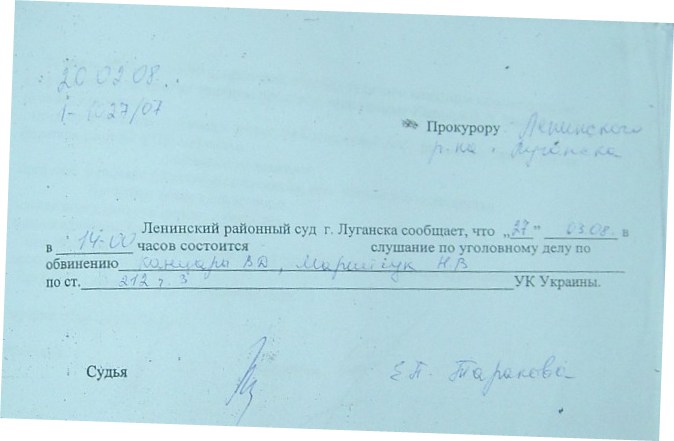 20 02 08.
27/07
Прокурору Ленинского
р-на г. Луганска
Ленинский районный суд г. Луганска сообщает, что „27” 03.08. в
в 14-00 часов состоится слушание по уголовному делу по
обвинению В Д, Н.В
по ст. 212 ч. 3 УК Украины.
Судья Е.П. Таракова